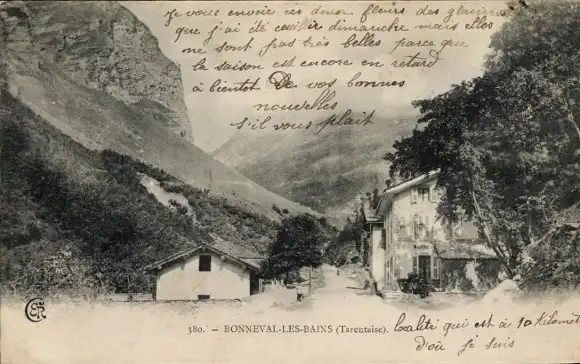 Je vous envoie ces deux fleurs des glaciers
que j'ai été cueillir dimanche mais elles
ne sont pas très belles parce que
la saison est encore en retard
à bientôt De vos bonnes
nouvelles
s'il vous plaît
380. - BONNEVAL-LES-BAINS (Tarentaise).
localité qui est à 10 kilomet
d'où je suis